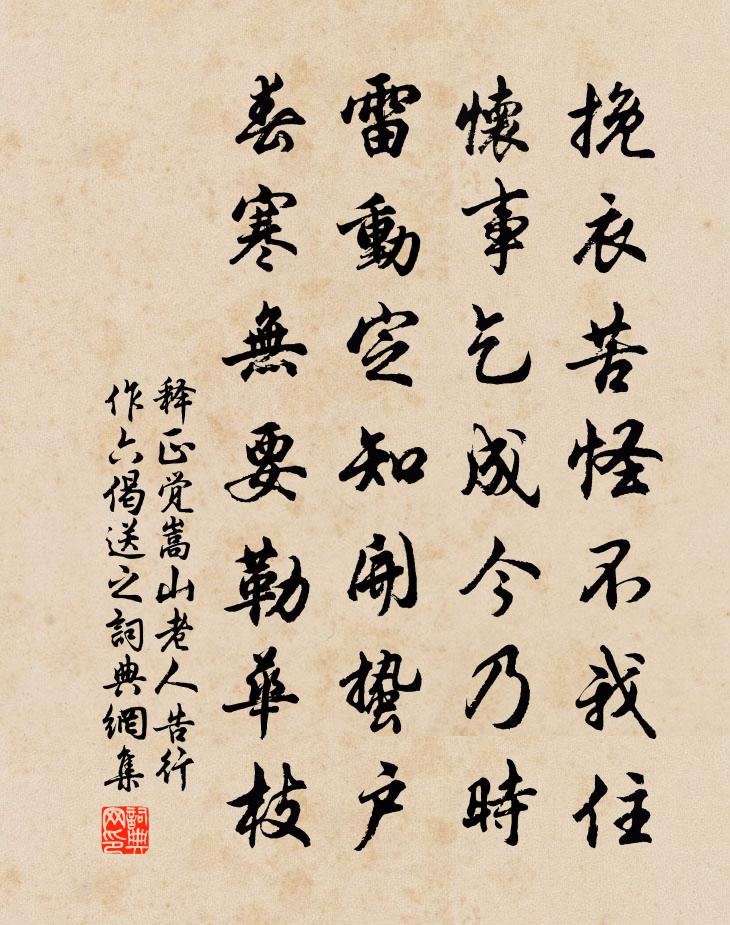 挽衣苦怪不我住
懷事乞成今乃時
雷動定知開蟄戶
春寒無要勒華枝
释正觉嵩山老人告行
作六偈送之詞典網集
詞典网印